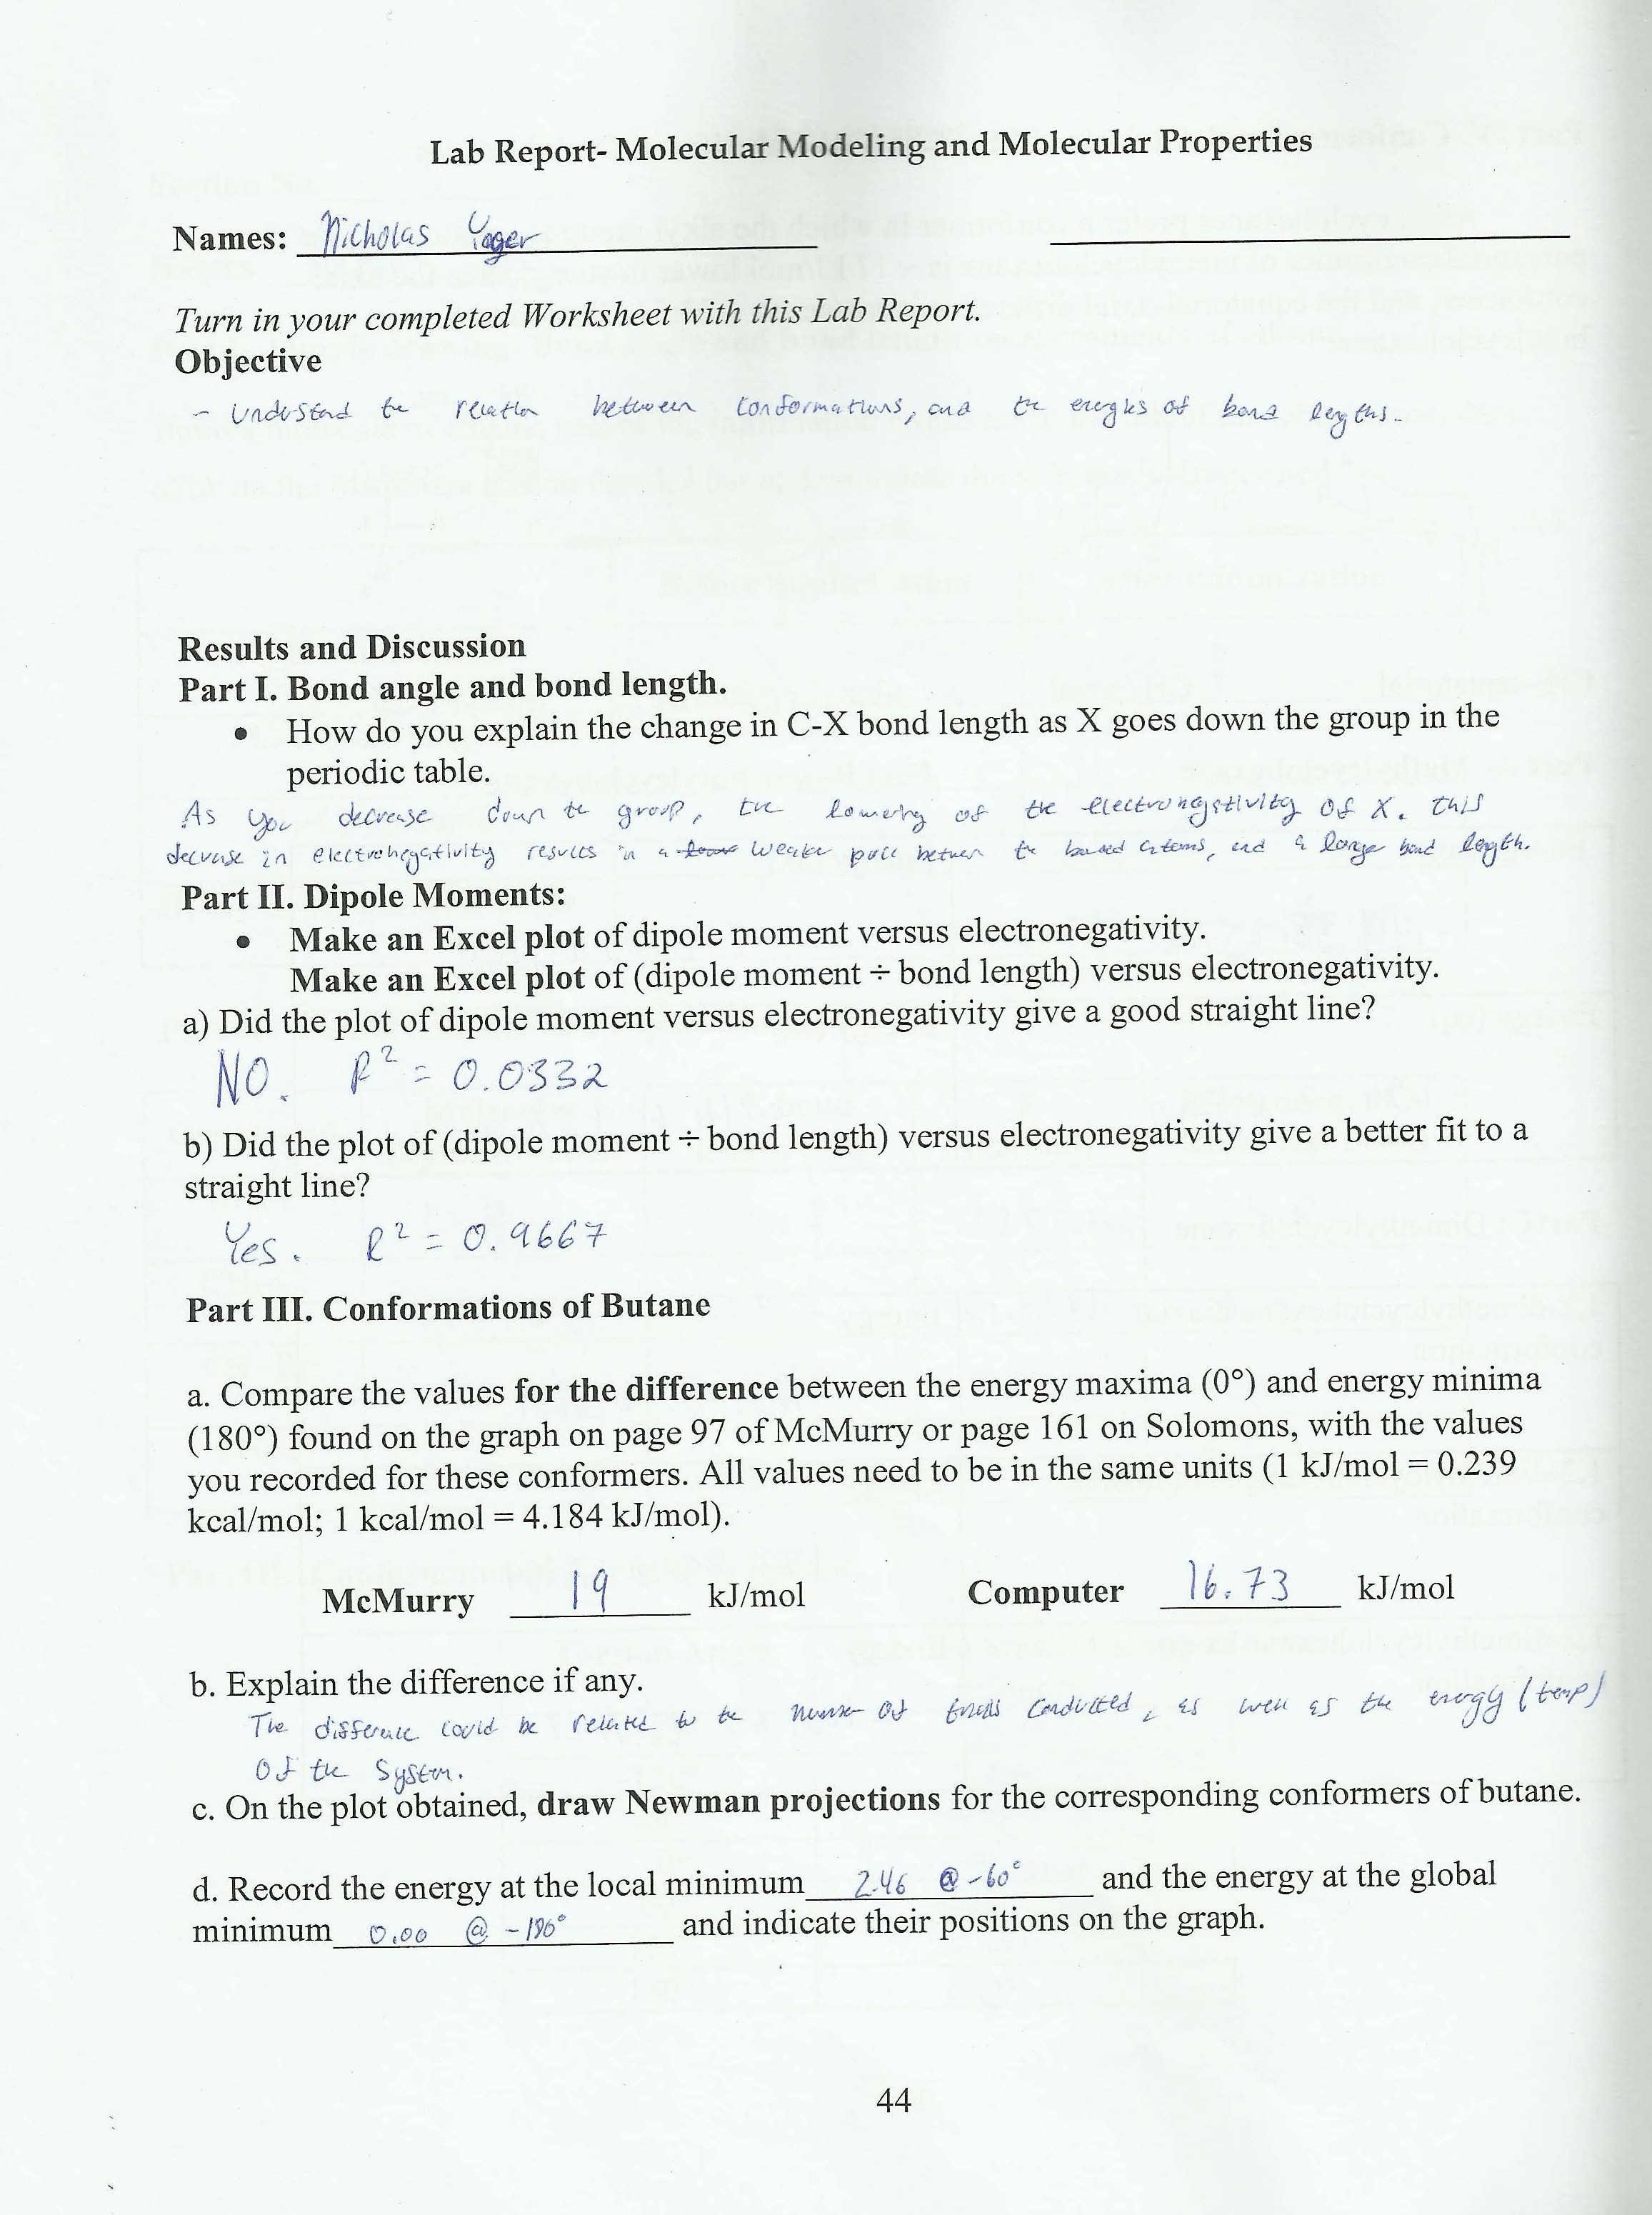 Lab Report- Molecular Modeling and Molecular Properties
Names: Nicholas Yager
Turn in your completed Worksheet with this Lab Report.
Objective
- Understand the relation between conformations, and the energies of bond lengths.
Results and Discussion
Part I. Bond angle and bond length.
• How do you explain the change in C-X bond length as X goes down the group in the
periodic table.
As you decrease down the group, the lowering of the electronegativity of X. this
decrease in electronegativity results in a weaker pull between the bonded atoms, and a longer bond length.
Part II. Dipole Moments:
• Make an Excel plot of dipole moment versus electronegativity.
Make an Excel plot of (dipole moment ÷ bond length) versus electronegativity.
a) Did the plot of dipole moment versus electronegativity give a good straight line?
NO. R² = 0.0332
b) Did the plot of (dipole moment ÷ bond length) versus electronegativity give a better fit to a
straight line?
Yes. R² = 0.9667
Part III. Conformations of Butane
a. Compare the values for the difference between the energy maxima (0°) and energy minima
(180°) found on the graph on page 97 of McMurry or page 161 on Solomons, with the values
you recorded for these conformers. All values need to be in the same units (1 kJ/mol = 0.239
kcal/mol; 1 kcal/mol = 4.184 kJ/mol).
McMurry 19 kJ/mol Computer 16.73 kJ/mol
b. Explain the difference if any.
The difference could be related to the number of trials conducted, as well as the energy (temp)
of the system.
c. On the plot obtained, draw Newman projections for the corresponding conformers of butane.
d. Record the energy at the local minimum 2.46 @ -60° and the energy at the global
minimum 0.00 @ -180° and indicate their positions on the graph.
44